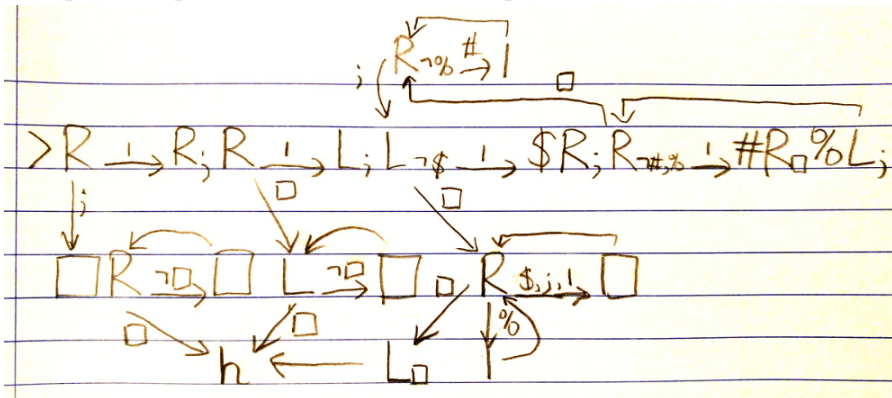 R¬% # → 1
; □
>R 1 → R; R 1 → L; L¬$ 1 → $R; R¬#,% 1 → #R□%L;
; □ □
□ R ¬□ → □ L ¬□ → □ □ R $,;,1 → □
□ □ %
h ← L□ 1